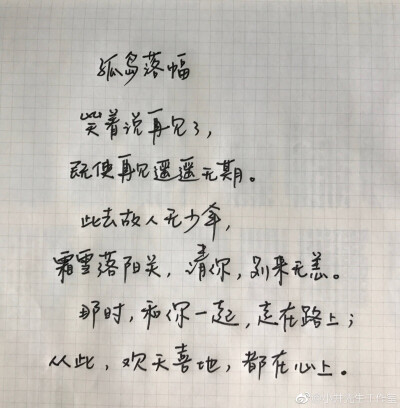 孤岛落幅
笑着说再见了，
既使再见遥遥无期。
此去故人无少年，
霜雪落阳关，请你，别来无恙。
那时，和你一起，走在路上；
从此，欢天喜地，都在心上。